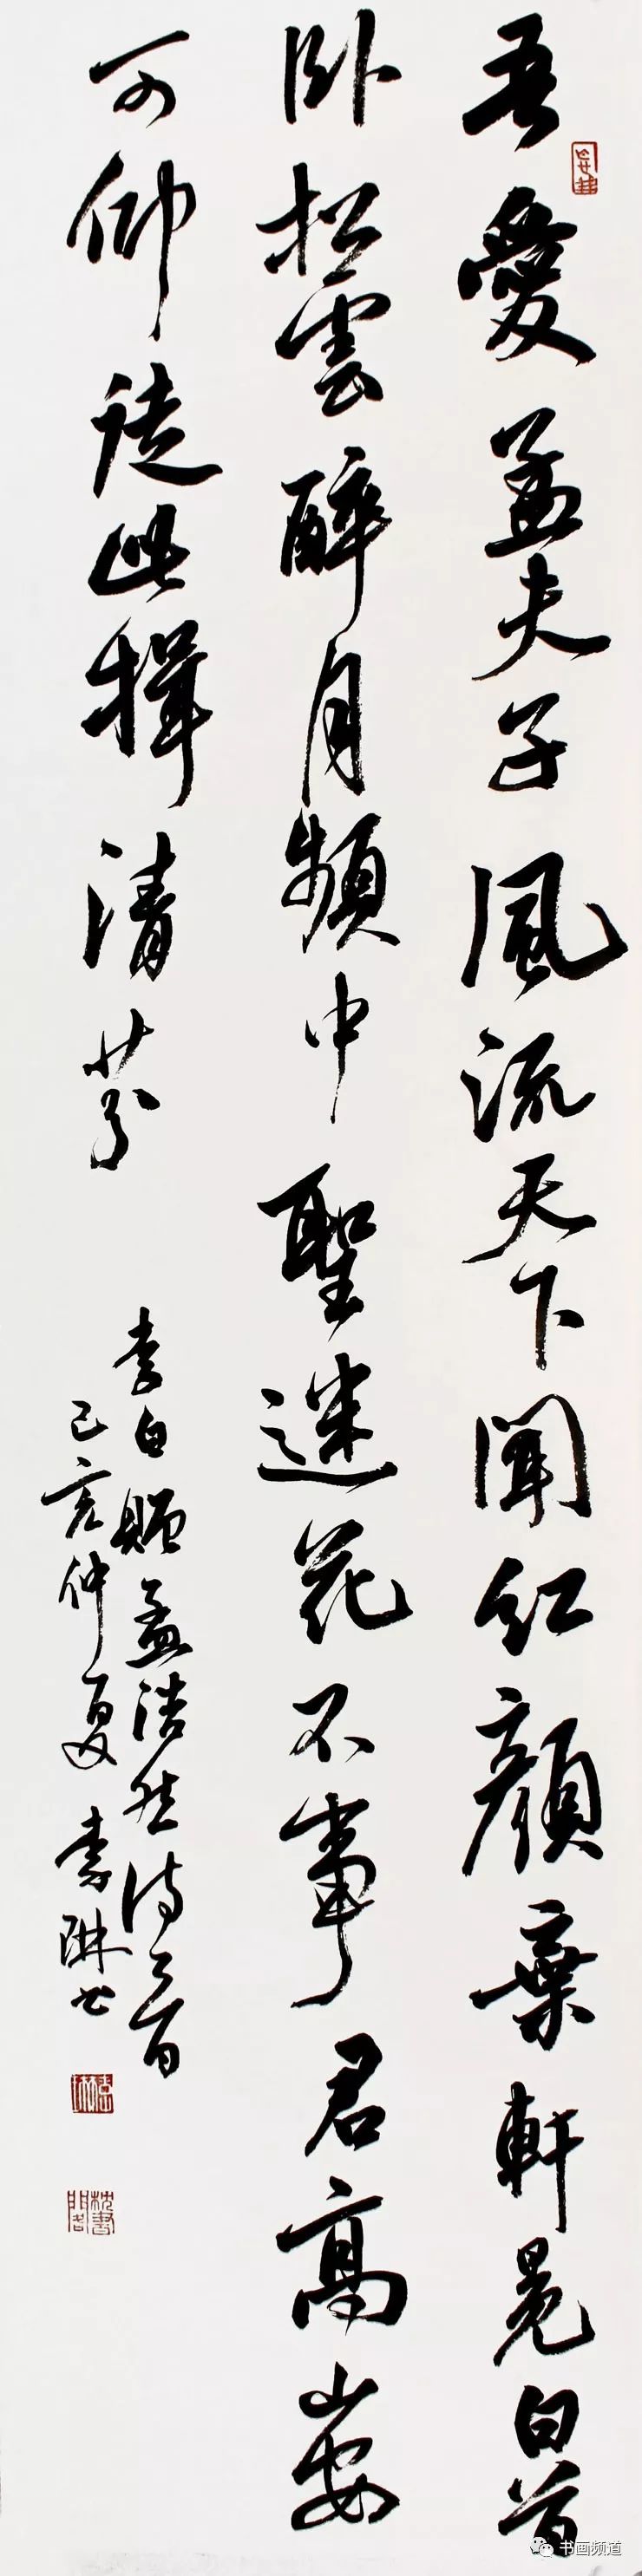 吾愛孟夫子風流天下聞紅顏棄軒冕白首
卧松雲醉月頻中聖迷花不事君高山安
可仰徒此揖清芬
李白贈孟浩然詩一首
己亥仲夏李琳書
李琳
书画频道